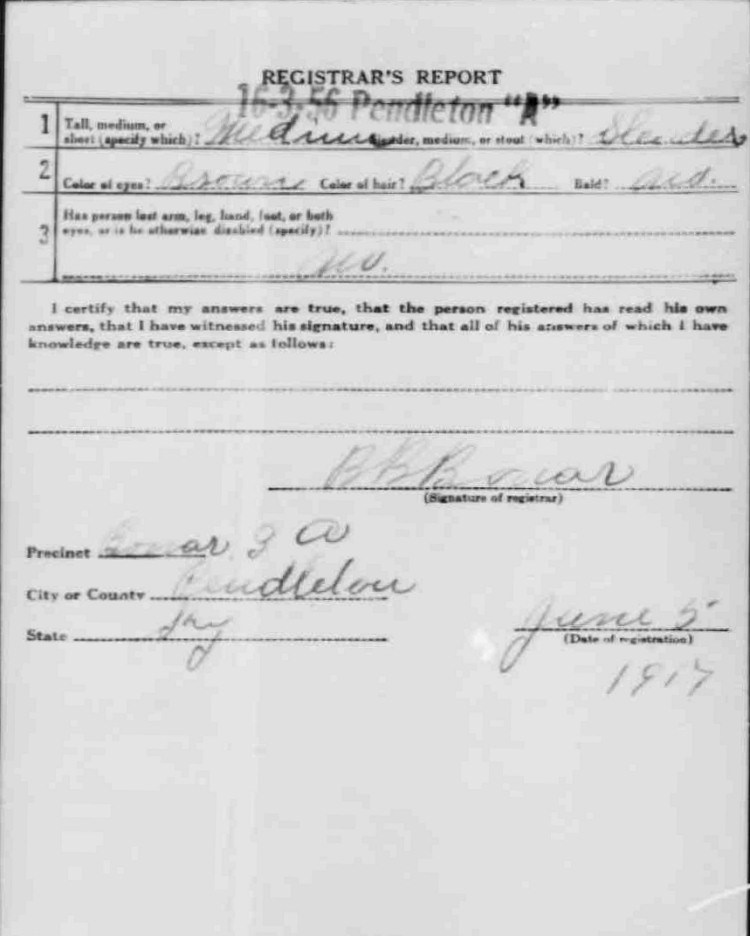 REGISTRAR'S REPORT
16-3-56 Pendleton "A"
1 Tall, medium, or
short (specify which)? Medium Slender, medium, or stout (which)? Slender
2 Color of eyes? Brown Color of hair? Black Bald? No.
3 Has person lost arm, leg, hand, foot, or both
eyes, or is he otherwise disabled (specify)?
No.
I certify that my answers are true, that the person registered has read his own
answers, that I have witnessed his signature, and that all of his answers of which I have
knowledge are true, except as follows:
B B Bonar
(Signature of registrar)
Precinct Bonar 3 A
City or County Pendleton
State Ky
June 5
(Date of registration)
1917